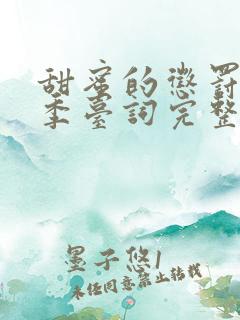 甜蜜的懲罰
季臺詞完整
墨子悠1
未任同意禁止轉載